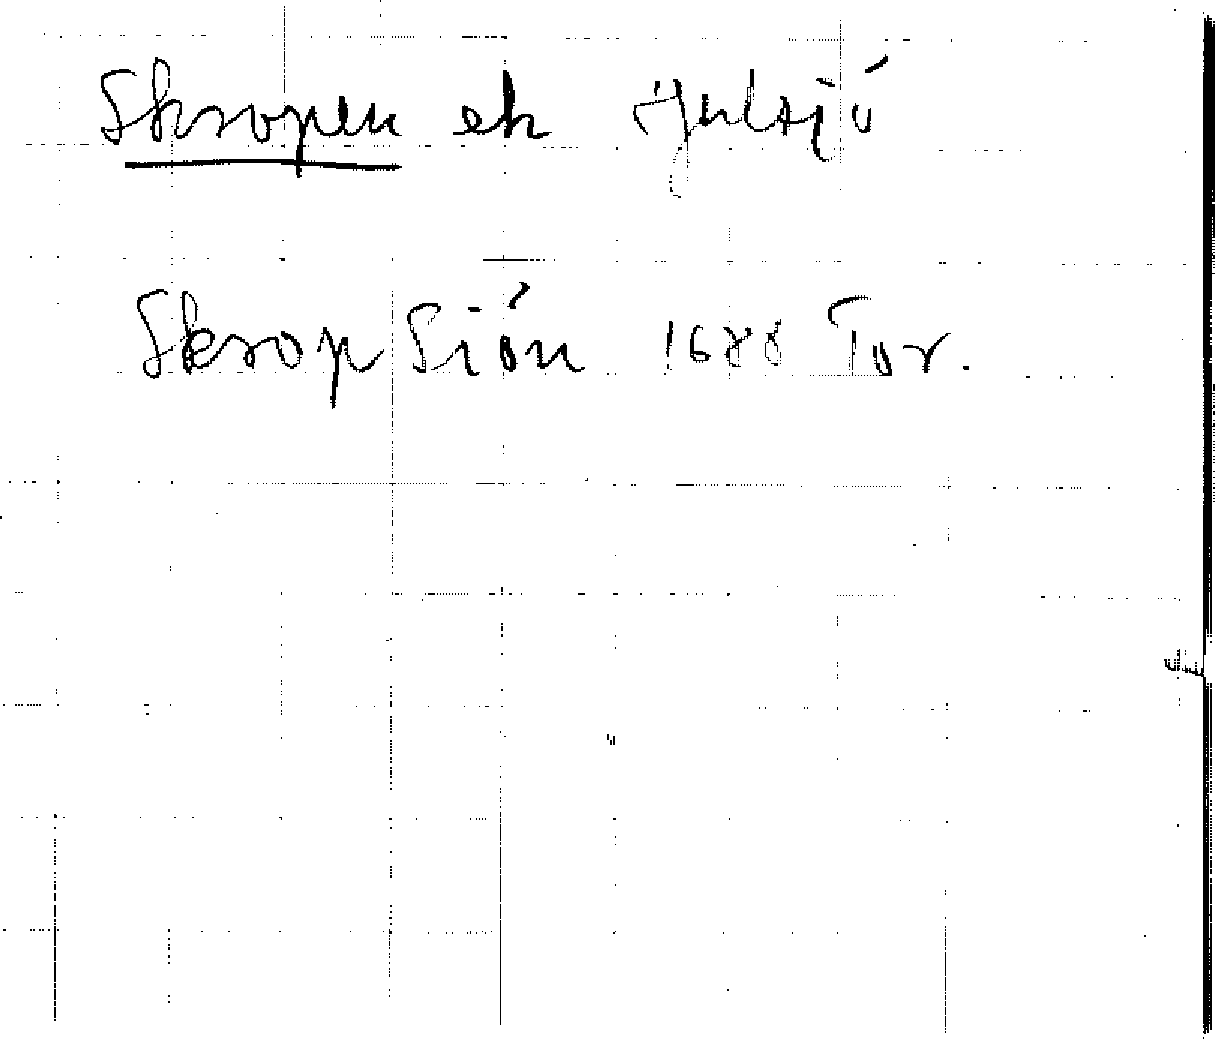 Skropen ek Gulsjö
Skropsiön 1688 Tor.